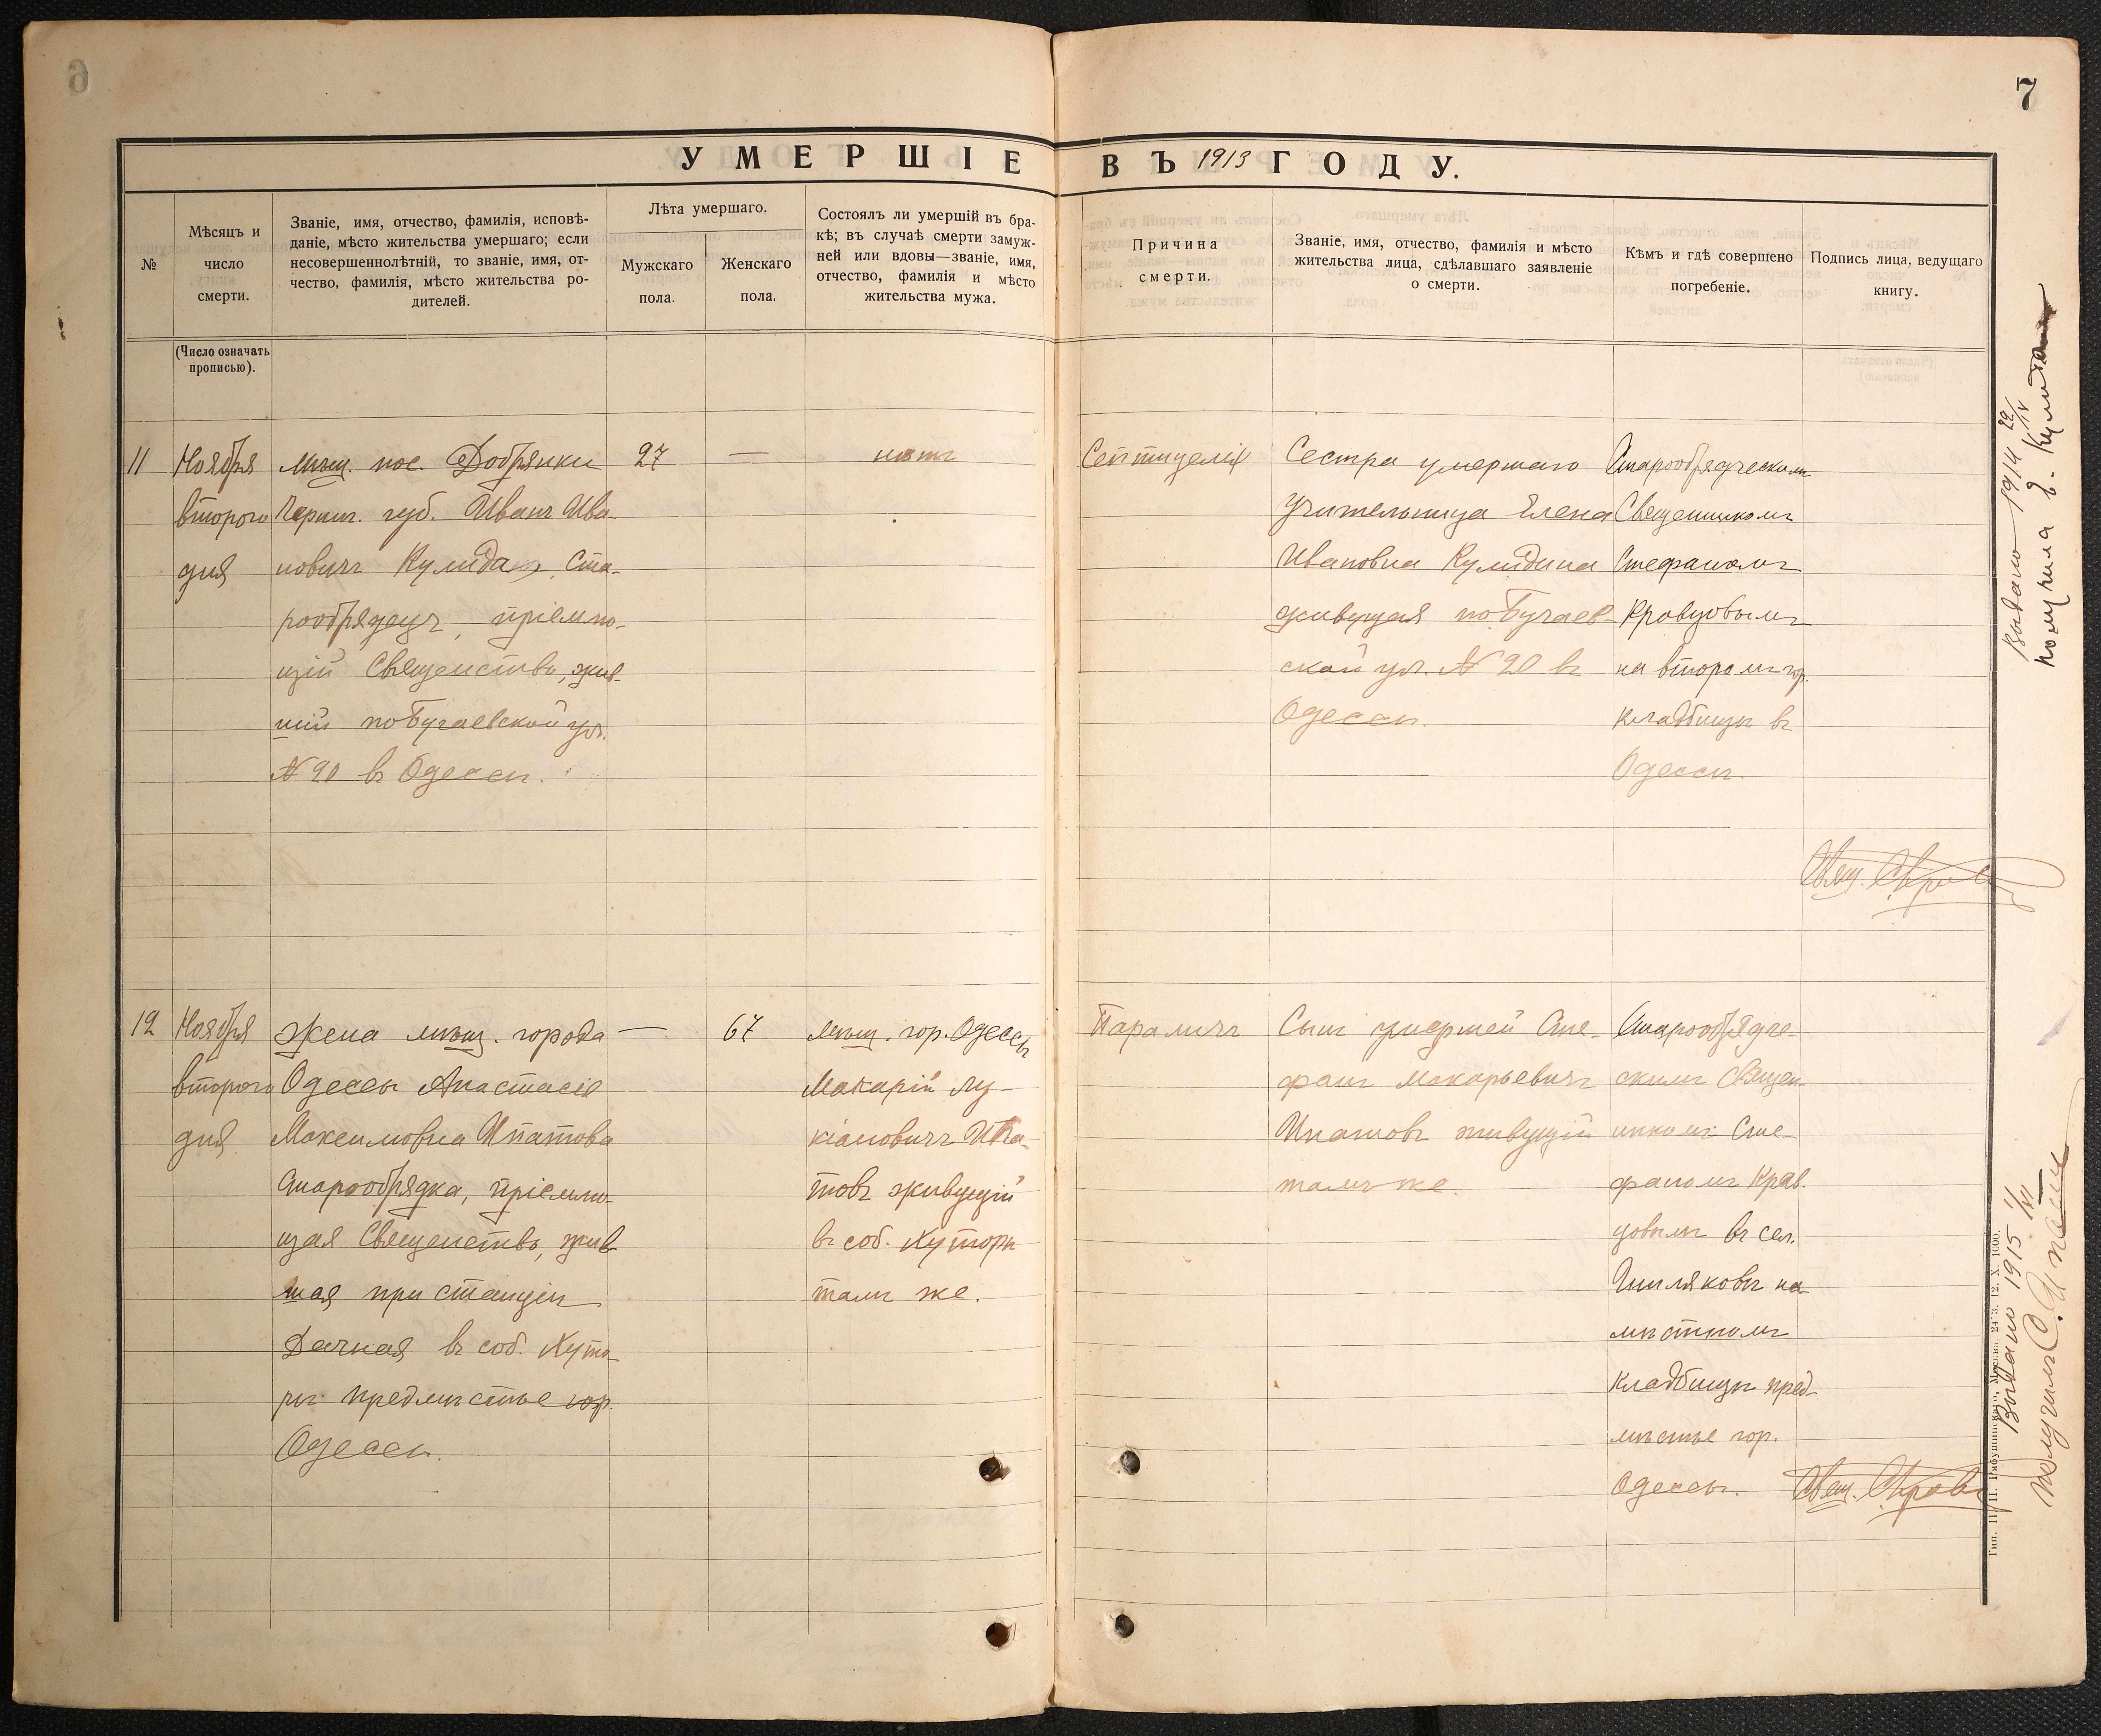 7
УМЕРШІЕ ВЪ 1913 ГОДУ.
№
Мѣсяцъ и
число
смерти.
(Число означать
прописью).
Званіе, имя, отчество, фамилія, исповѣ-
даніе, мѣсто жительства умершаго; если
несовершеннолѣтній, то званіе, имя, от-
чество, фамилія, мѣсто жительства ро-
дителей.
Лѣта умершаго.
Мужскаго
пола.
Женскаго
пола.
Состоялъ ли умершій въ бра-
кѣ; въ случаѣ смерти замуж-
ней или вдовы—званіе, имя,
отчество, фамилія и мѣсто
жительства мужа.
Причина
смерти.
Званіе, имя, отчество, фамилія и мѣсто
жительства лица, сдѣлавшаго заявленіе
о смерти.
Кѣмъ и гдѣ совершено
погребеніе.
Подпись лица, ведущаго
книгу.
11
Ноября
второго
дня
мѣщ. пос. Добрянки
Черниг. губ. Иванъ Ива-
новичъ Кулида, Ста-
рообрядецъ, пріемлю-
щій Священство, жив-
шій по Бугаевской ул.
№ 20 въ Одессѣ.
27
—
нѣтъ
Сестра умершаго
Учительница Елена
Ивановна Кулидина
живущая по Бугаев-
ской ул. № 20 въ
Одессѣ.
Старообрядческимъ
Священникомъ
Стефаномъ
Кравцовымъ
на второмъ гор.
кладбищѣ въ
Одессѣ.
Свящ.
12
Ноября
второго
дня
Жена мѣщ. города
Одессы Анастасія
Максимовна Ипатова
Старообрядка, пріемлю-
щая Священство, жив-
шая при станціи
Дачная въ соб. Хуто-
рѣ предмѣстье гор.
Одессы.
—
67
Мѣщ. гор. Одессы
Макарій Лу-
кіановичъ Ипа-
товъ живущій
въ соб. Хуторѣ
тамъ же.
Параличъ
Сынъ умершей Сте-
фанъ Макарьевичъ
Ипатовъ живущій
тамъ же.
Старообрядче-
скимъ Священ-
никомъ Сте-
фаномъ Крав-
цовымъ въ сел.
Усть
мѣстномъ
кладбищѣ пред-
мѣстье гор.
Одессы.
Свящ.
Выдано 1914 22/IV
получила Е. Кулидина
Выдано 1915
получилъ С. Ипатов